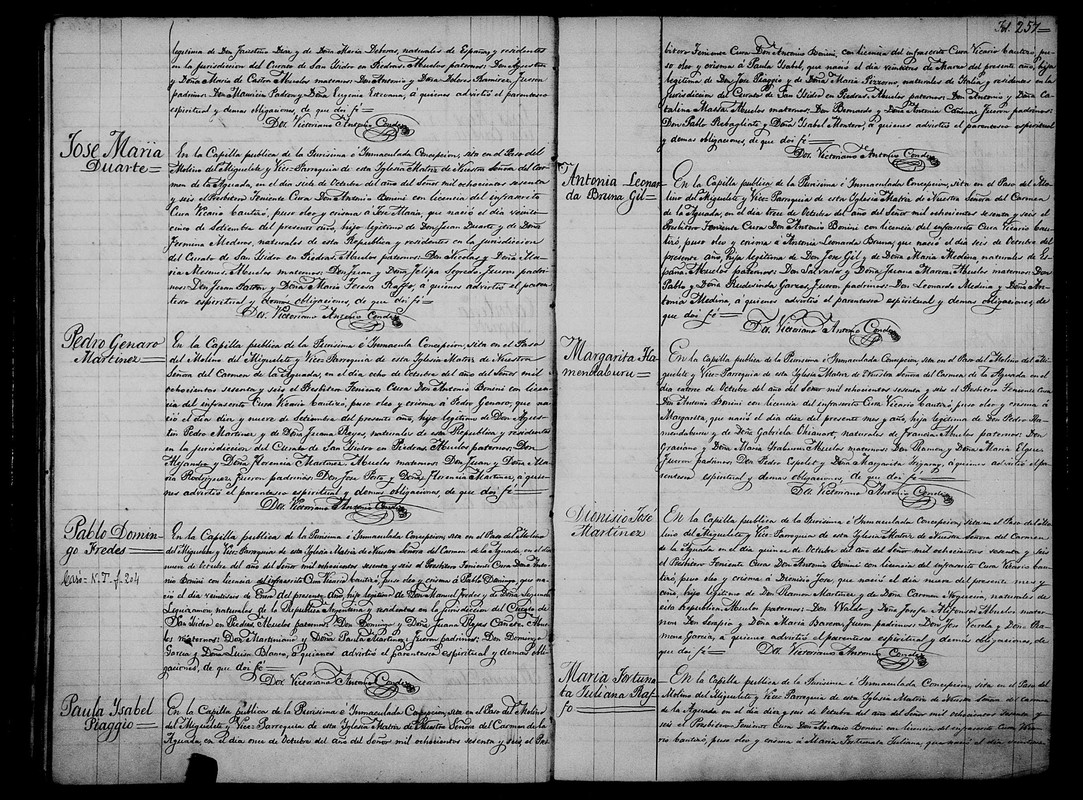 legitima de Don Faustino Diaz y de Doña Maria naturales de España y residentes
en la jurisdiccion del Curato de San Isidro en Piedras. Abuelos paternos: Don Agustin
y Doña Maria de Castro Abuelos maternos: Don Antonio y Doña Dolores Ramirez, fueron
padrinos: Don Mauricio y Doña Eugenia á quienes advirtió el parentesco
espiritual y demas obligaciones de que doi fé=
Dor. Victoriano Antonio Conde
Jose Maria
Duarte=
En la Capilla publica de la Purisima é Inmaculada Concepcion, sita en el Paso del
Molino del Miguelete y Vice-Parroquia de esta Iglesia Matriz de Nuestra Señora del Car-
men de la Aguada, en el dia siete de Octubre del año del Señor mil ochocientos sesenta
y seis el Presbitero Teniente Cura Don Antonio Bonini con licencia del infrascrito
Cura Vicario bautizó, puso oleo y crisma á José Maria, que nació el dia veinte
cinco de Setiembre del presente año, hijo legitimo de Don Juan Duarte y de Doña
Fermina Medina, naturales de esta Republica y residentes en la jurisdiccion
del Curato de San Isidro en Piedras. Abuelos paternos: Don Nicolas y Doña
Abuelos maternos: Don Juan y Doña Felipa fueron padri-
nos: Don Juan y Doña Maria Teresa Raffo, á quienes advirtió el paren
tesco espiritual y demás obligaciones, de que doi fé=
Dor. Victoriano Antonio Conde
Pedro Genaro
Martinez=
En la Capilla publica de la Purisima é Inmacula Concepcion, sita en el Paso
del Molino del Miguelete, y Vice-Parroquia de esta Iglesia Matriz de Nuestra
Señora del Carmen de la Aguada, en el dia ocho de Octubre del año del Señor mil
ochocientos sesenta y seis el Presbitero Teniente Cura Don Antonio Bonini con licen-
cia del infrascrito Cura Vicario bautizó, puso oleo y crisma á Pedro Genaro, que na-
ció el dia diez y nueve de Setiembre del presente año, hijo legitimo de Don Agus-
tin Pedro Martinez y de Doña Juana Reyes naturales de esta Republica y residentes
en la jurisdiccion del Curato de San Isidro en Piedras. Abuelos paternos: Don
Alejandro y Doña Florencia Martinez Abuelos maternos: Don Juan y Doña Ma-
ria Rodriguez, fueron padrinos: Don Jose y Doña Florencia Martinez, á quie-
nes advirtió el parentesco espiritual y demas obligaciones de que doi fé=
Dor. Victoriano Antonio Conde
Pablo Domin-
go Fredes=
En la Capilla publica de la Purisima é Inmaculada Concepcion, sita en el Paso del Molino
del Miguelete y Vice-Parroquia de esta Iglesia Matriz de Nuestra Señora del Carmen de la Aguada, en el dia
nueve de Octubre del año del Señor mil ochocientos sesenta y seis el Presbitero Teniente Cura Don Anto-
nio Bonini con licencia del infrascrito Cura Vicario bautizó, puso oleo y crisma á Pablo Domingo, que na-
ció el dia veintiseis de Enero del presente año, hijo legitimo de Don Manuel Fredes y de Doña Segunda
naturales de la Republica Argentina y residentes en la jurisdiccion del Curato de
San Isidro en Piedras. Abuelos paternos: Don Domingo y Doña Juana Reyes Abue-
los maternos: Don Martiniano y Doña Paula Martinez, fueron padrinos: Don Domingo
Garcia y Doña Luisa Blanco, á quienes advirtió el parentesco espiritual y demas obli-
gaciones, de que doi fé=
Dor. Victoriano Antonio Conde
Paula Ysabel
Piaggio=
En la Capilla publica de la Purisima é Inmaculada Concepcion, sita en el Paso del Molino
del Miguelete, y Vice-Parroquia de esta Iglesia Matriz de Nuestra Señora del Carmen de la
Aguada, en el dia once de Octubre del año del Señor mil ochocientos sesenta y seis, el Pres-
Fol. 257=
bitero Teniente Cura Don Antonio Bonini con licencia del infrascrito Cura Vicario bautizó, pu-
so oleo y crisma á Paula Isabel, que nació el dia veintiuno de Marzo del presente año, hija
legitima de Don Jose Piaggio y de Doña Maria Pizzorno naturales de Italia y residentes en la
jurisdiccion del Curato de San Isidro en Piedras. Abuelos paternos: Don Antonio y Doña Ca-
talina Abuelos maternos: Don Bernardo y Doña Antonia fueron padrinos:
Don Pablo y Doña Isabel Montero, á quienes advirtió el parentesco espiritual
y demas obligaciones, de que doi fé=
Dor. Victoriano Antonio Conde
Antonia Leonar-
da Bruna Gil=
En la Capilla publica de la Purisima é Inmaculada Concepcion, sita en el Paso del Mo-
lino del Miguelete y Vice-Parroquia de esta Iglesia Matriz de Nuestra Señora del Carmen
de la Aguada, en el dia trece de Octubre del año del Señor mil ochocientos sesenta y seis el
Presbitero Teniente Cura Don Antonio Bonini con licencia del infrascrito Cura Vicario bau-
tizó, puso oleo y crisma á Antonia Leonarda Bruna, que nació el dia seis de Octubre del
presente año, hija legitima de Don Jose Gil y de Doña Maria Medina, naturales de Es-
paña Abuelos paternos: Don Salvador y Doña Juana Abuelos maternos: Don
Pablo y Doña Garces, fueron padrinos: Don Leonardo Medina y Doña An-
tonia Medina, á quienes advirtió el parentesco espiritual y demas obligaciones, de
que doi fé=
Dor. Victoriano Antonio Conde
Margarita Ha-
mendaburu=
En la Capilla publica de la Purisima é Inmaculada Concepcion, sita en el Paso del Molino del Mi-
guelete y Vice-Parroquia de esta Iglesia Matriz de Nuestra Señora del Carmen de la Aguada en el
dia catorce de Octubre del año del Señor mil ochocientos sesenta y seis el Presbitero Teniente Cura
Don Antonio Bonini con licencia del infrascrito Cura Vicario bautizó, puso oleo y crisma á
Margarita, que nació el dia diez de presente mes y año, hija legitima de Don Pedro Ha-
mendaburu y de Doña Gabriela naturales de Francia Abuelos paternos: Don
Graciano y Doña Maria Abuelos maternos: Don Ramon y Doña Maria
fueron padrinos: Don Pedro y Doña Margarita á quienes advirtió el pa-
rentesco espiritual y demas obligaciones, de que doi fé=
Dor. Victoriano Antonio Conde
Dionisio José
Martinez
En la Capilla publica de la Purisima é Inmaculada Concepcion, sita en el Paso del Mo-
lino del Miguelete y Vice-Parroquia de esta Iglesia Matriz de Nuestra Señora del Carmen
de la Aguada en el dia quince de Octubre del año del Señor mil ochocientos sesenta y seis
el Presbitero Teniente Cura Don Antonio Bonini con licencia del infrascrito Cura Vicario bau-
tizó, puso oleo y crisma á Dionisio Jose, que nació el dia nueve del presente mes y
año, hijo legitimo de Don Ramon Martinez y de Doña Carmen naturales de
esta Republica Abuelos paternos: Don y Doña Josefa Alfonso Abuelos mater-
nos: Don Serapio y Doña Maria fueron padrinos: Don Jose Varela y Doña Ra-
mona Garcia, á quienes advirtió el parentesco espiritual y demas obligaciones, de
que doi fé=
Dor. Victoriano Antonio Conde
Maria Fortuna-
ta Juliana Raf-
fo=
En la Capilla publica de la Purisima é Inmaculada Concepcion, sita en el Paso del
Molino del Miguelete, y Vice-Parroquia de esta Iglesia Matriz de Nuestra Señora del Carmen
de la Aguada en el dia diez y seis de Octubre del año del Señor mil ochocientos sesenta y
seis el Presbitero Teniente Cura Don Antonio Bonini con licencia del infrascrito Cura Vica-
rio bautizó, puso oleo y crisma á Maria Fortunata Juliana, que nació el dia